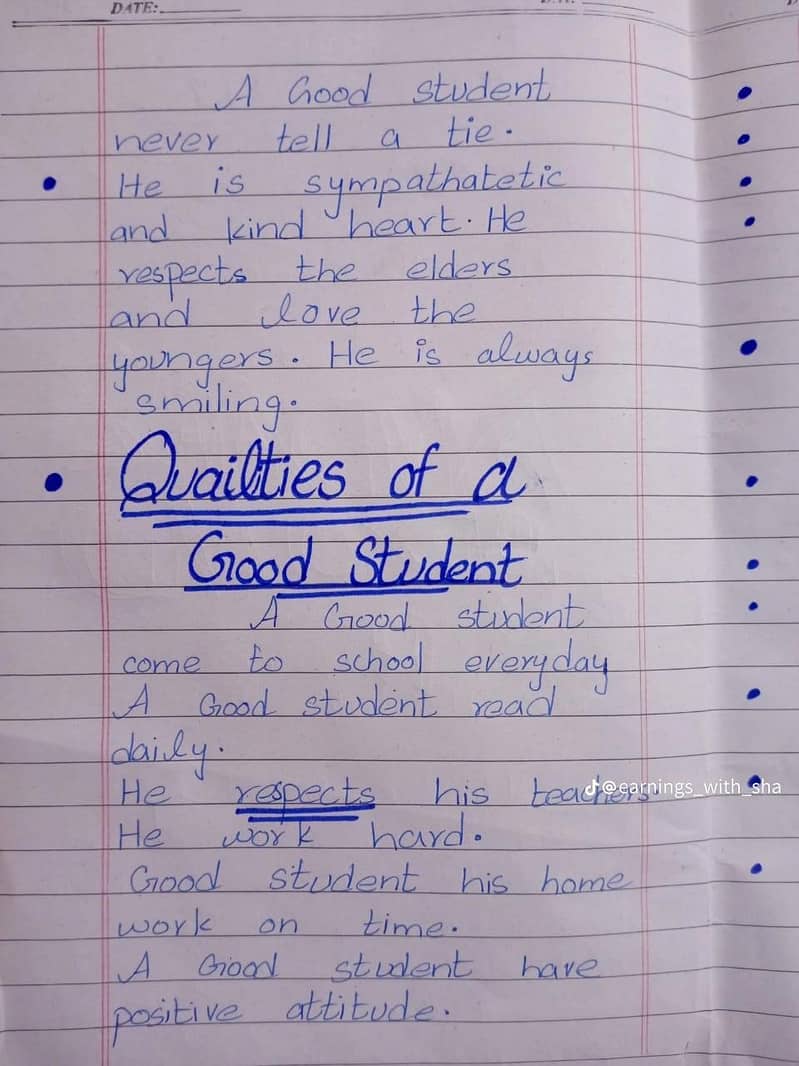 DATE:
A Good student
never tell a tie.
He is sympathatetic
and kind heart. He
respects the elders
and love the
youngers. He is always
smiling.
Quailties of a
Good Student
A Good student
come to school everyday
A Good student read
daily.
He respects his teachers
@earnings_with_sha
He work hard.
Good student his home
work on time.
A Good student have
positive attitude.